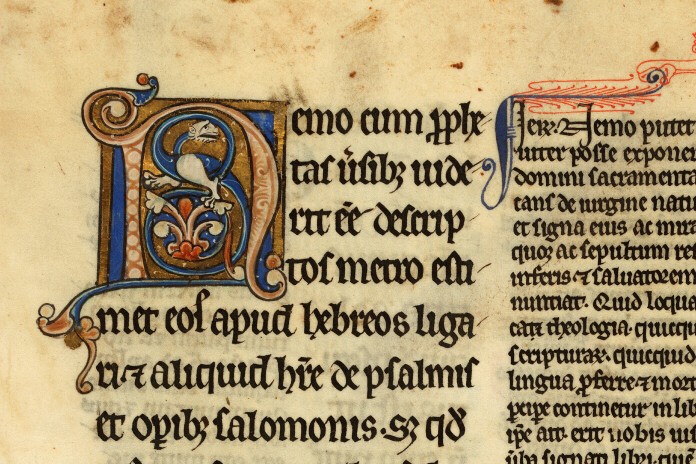 Nemo cum ꝓphe
tas v̾sibꝫ uide
rit ee̅ descrip
tos metro esti
met eos apud hebreos liga
ri ⁊ aliquid hr̅e de psalmis
et oꝑibꝫ salomonis. Sꝫ qd̅
Ier. Nemo putet
uiter posse exponer
domini sacramenta
cans de uirgine natu
et signa eius ac mira
quoꝫ ac sepultum res
inferis ⁊ saluatorem
nuntiat. Quid loqua
theologia. quicqu
scripturaꝝ. quicquid
lingua ꝓferre ⁊ mort
continetur in lib
ip̅e ait. erit uobis uis
signati libri. que